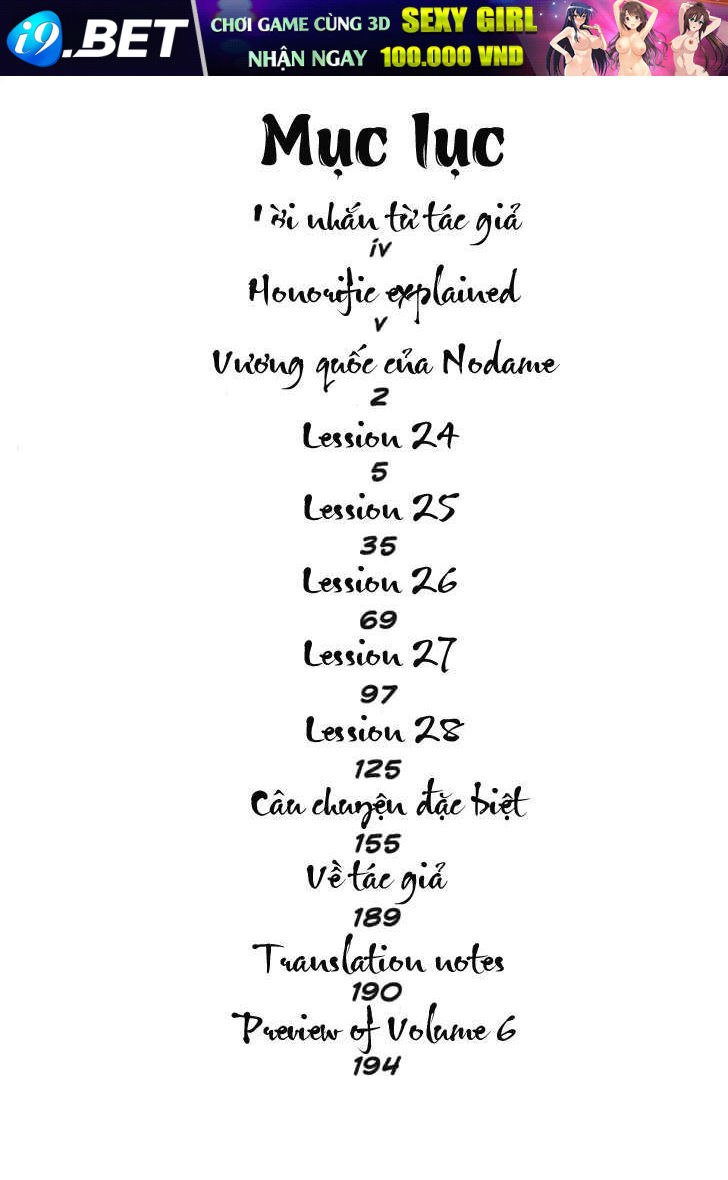 i9.BET
CHƠI GAME CÙNG 3D SEXY GIRL
NHẬN NGAY 100.000 VND
Mục lục
Lời nhắn từ tác giả
iv
Honorific explained
v
Vương quốc của Nodame
2
Lession 24
5
Lession 25
35
Lession 26
69
Lession 27
97
Lession 28
125
Câu chuyện đặc biệt
155
Về tác giả
189
Translation notes
190
Preview of Volume 6
194